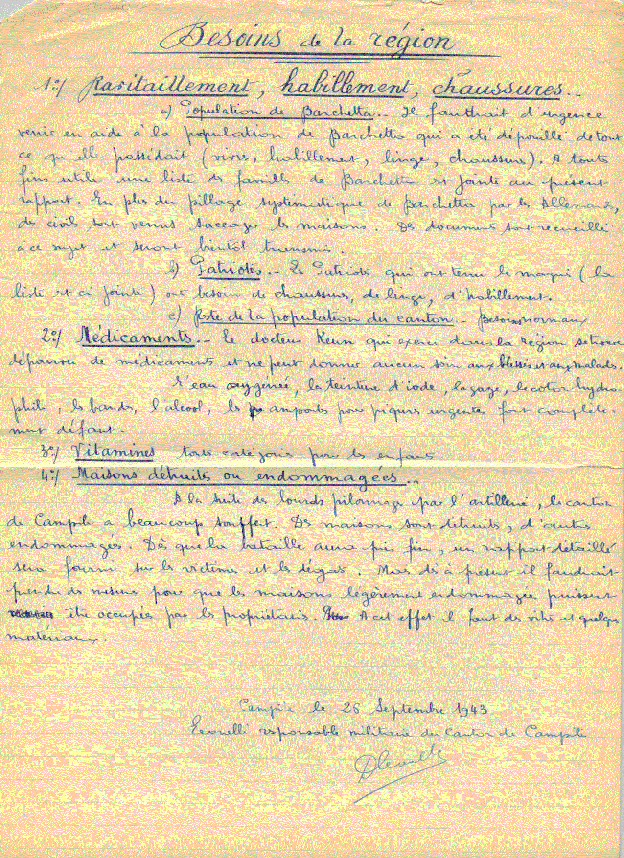 Besoins de la région
1o/ Ravitaillement, habillement, chaussures..
a) Population de Barchetta.. Il faudrait d'urgence
venir en aide à la population de Barchetta qui a été dépouillé de tout
ce qu'elle possédait (vivres, habillement, linge, chaussures). A toute
fins utiles une liste des familles de Barchetta est jointe au présent
rapport. En plus du pillage systématique de Barchetta par les Allemands,
des civils sont venus saccager les maisons. Des documents sont recueillis
a ce sujet et seront bientôt transmis.
b) Patriotes.. Les Patriotes qui ont tenu le maquis (la
liste est ci jointe) ont besoin de chaussures, de linge, d'habillement.
c) Reste de la population du canton.. Besoins normaux
2o/ Médicaments.. Le docteur Keun qui exerce dans la région se trouve
dépourvu de médicaments et ne peut donner aucun soin aux blessés et aux malades.
L'eau oxygénée, la teinture d'iode, la gaze, le coton hydro-
phile, les bandes, l'alcool, les ampoules pour piqures urgentes font complète-
ment défaut.
3o/ Vitamines toutes catégories pour les enfants
4o/ Maisons détruites ou endommagées..
A la suite des lourds pilonnages par l'artillerie, le canton
de Campile a beaucoup souffert. Des maisons sont détruites, d'autres
endommagées. Dès que la bataille aura pris fin, un rapport détaillé
sera fourni sur les victimes et les dégats. Mais dès à présent il faudrait
prendre des mesures pour que les maisons légèrement endommagées puissent
être occupées par les propriétaires. A cet effet il faut des vitres et quelques
matériaux.
Campile le 28 Septembre 1943
responsable militaire du Canton de Campile